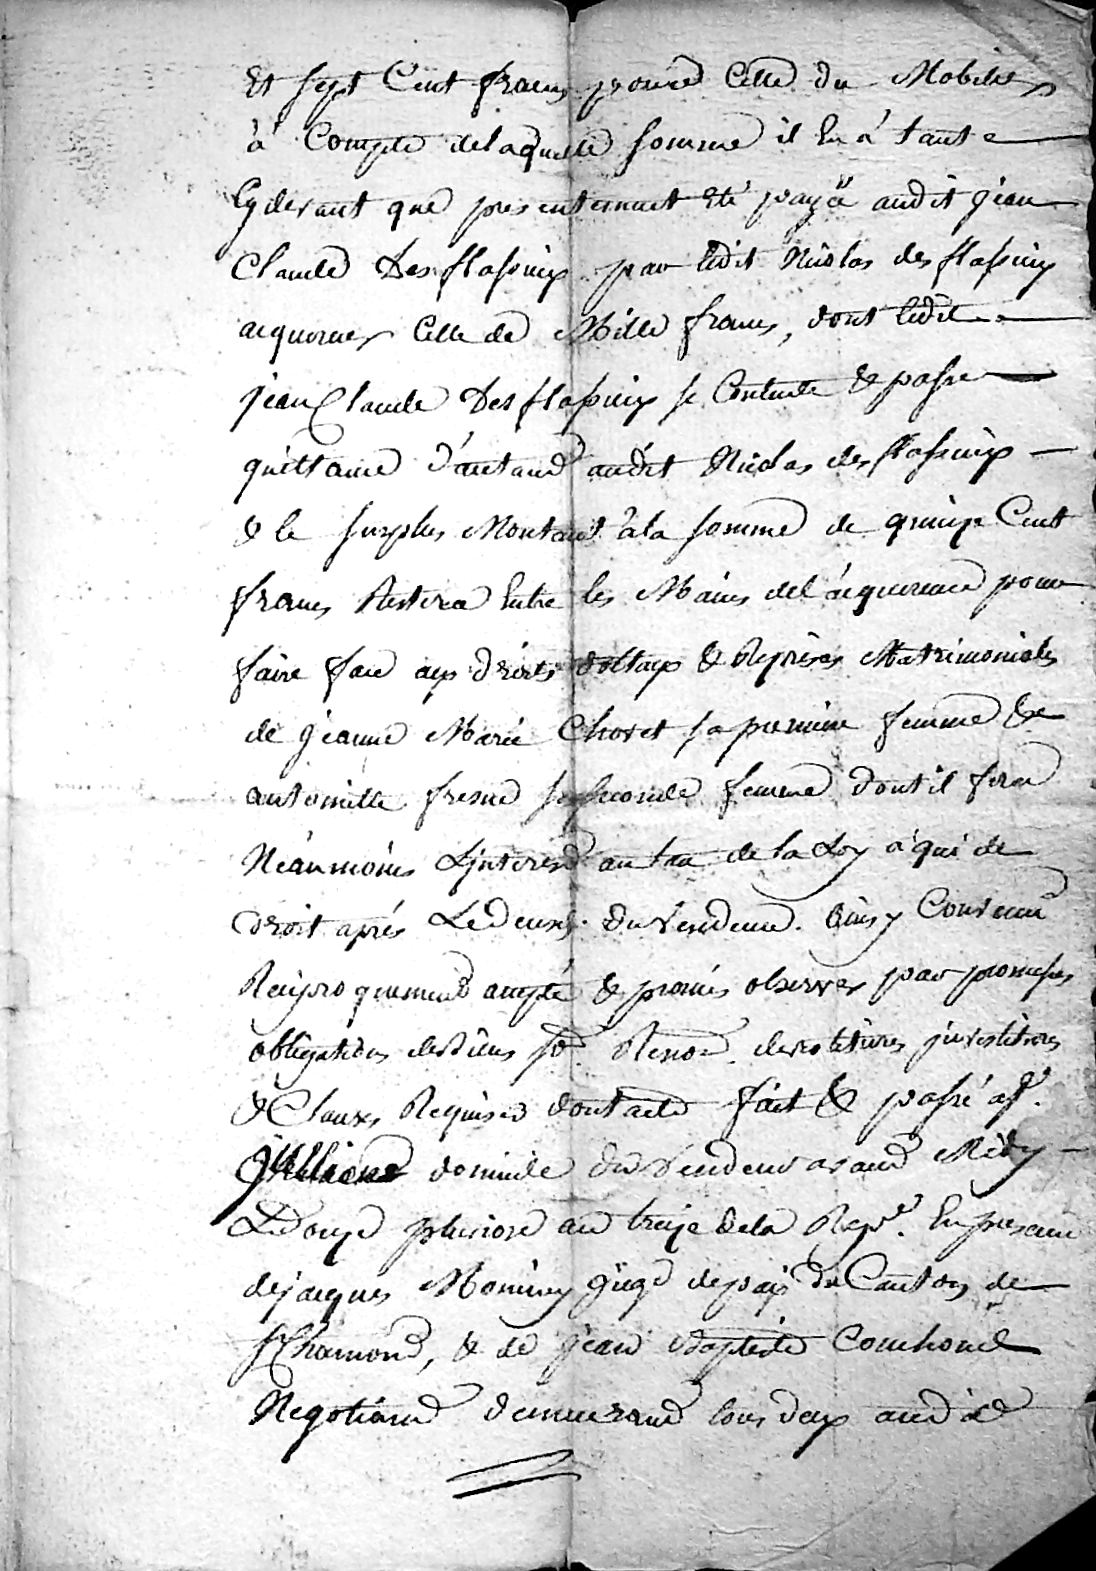 Et sept Cent francs pour Celle du Mobilier
à Compte delaquelle somme il En à tant
Cydevant que presentement été payée audit jean
Claude Desflassieux par ledit Nicolas desflassieux
acquereur Celle de Mille francs, dont ledit
jean Claude Desflassieux se Contente & passe
quittance d'autand audit Nicolas desflassieux
& le surplus Montant àla somme de quinze Cent
francs Restera Entre les Mains del'acquereur pour
faire face aux droits dottaux & Reprises Matrimoniales
de jeanne Marie Chovet sa premiere femme & de
antoinette fresne sa seconde femme dont il fera
Néanmoins L'jnterest au taux de la Loy à qui de
droit aprés Ledeces du vendeur. Ainsy Convenu
Reciproquement accepté & promis observer par promesses
obligations de biens renon. jnvestitures
& Clauses Requises dont acte fait & passé à st.
jullien domicile du vendeur avand Midy
Ledouze pluviose an treize dela Repe. En presence
dejacques juge depaix du Canton de
st Chamond, & de jean Baptiste
Negotiand demeurand tous deux aud